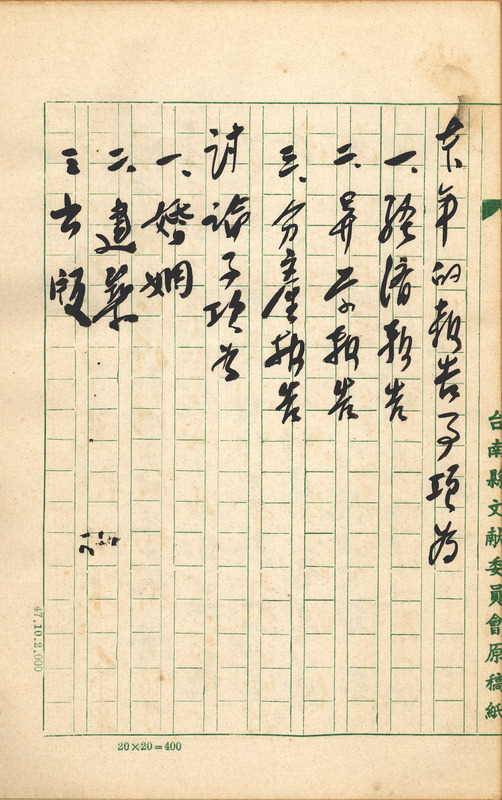 本年的報告子項為
一、經濟報告
二、昇立報告
三、分產報告
討論子項為
一、婚姻
二、遺業
三出版
台南縣文献委員會原稿紙
20×20=400
47.10.2.000